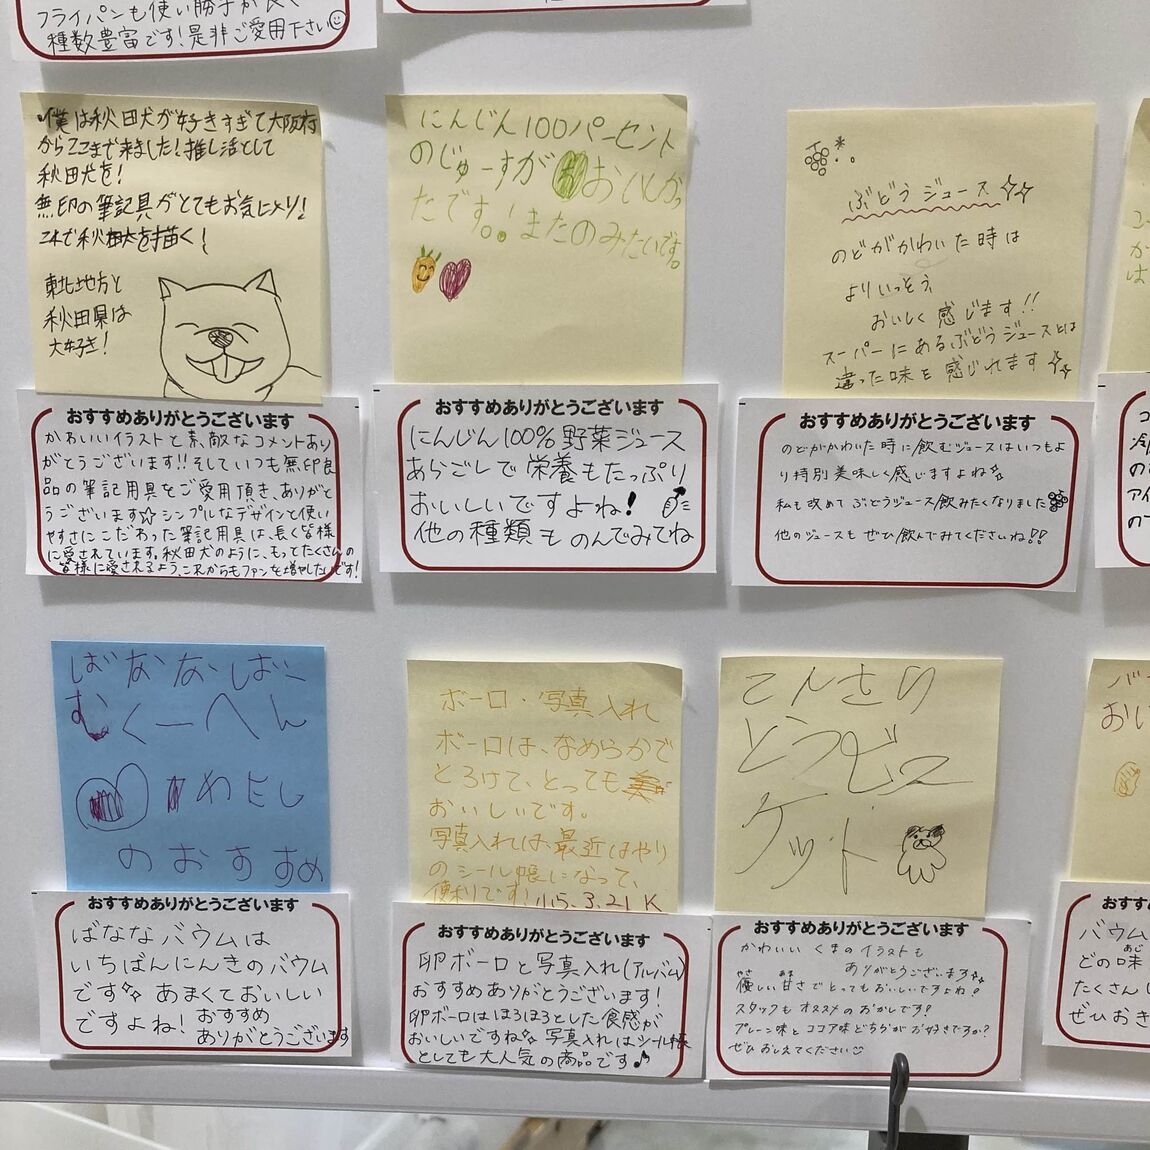 フライパンも使い勝手が良く
種数豊富です!是非ご愛用下さい☺
僕は秋田犬が好きすぎて大阪府
からここまで来ました!推し活として
秋田犬を!
無印の筆記具がとてもお気に入り!
これで秋田犬を描く!
東北地方と
秋田県は
大好き!
おすすめありがとうございます
かわいいイラストと素敵なコメントあり
がとうございます!!そしていつも無印良
品の筆記用具をご愛用頂き、ありがと
うございます☆シンプルなデザインと使い
やすさにこだわった筆記用具は、長く皆様
に愛されています。秋田犬のように、もってたくさんの
皆様に愛されるよう、これからもファンを増やしたいです!
にんじん100パーセント
のじゅーすがおいしかっ
たです。!またのみたいです。
おすすめありがとうございます
にんじん100%野菜ジュース
あらごしで栄養もたっぷり
おいしいですよね!
他の種類ものんでみてね
ぶどうジュース☆☆
のどがかわいた時は
よりいっそう、
おいしく感じます!!
スーパーにあるぶどうジュースとは
違った味を感じれます☆☆
おすすめありがとうございます
のどがかわいた時に飲むジュースはいつもよ
り特別美味しく感じますよね☆
私も改めてぶどうジュース飲みたくなりました
他のジュースもぜひ飲んでみてくださいね!!
ばななばー
むくーへん
わたし
のおすすめ
おすすめありがとうございます
ばななバウムは
いちばんにんきのバウム
です☆あまくておいしい
ですよね!おすすめ
ありがとうございます
ボーロ・写真入れ
ボーロは、なめらかで
とろけて、とっても
おいしいです。
写真入れは、最近はやり
のシール帳になって、
便利です!
おすすめありがとうございます
卵ボーロと写真入れ(アルバム)
おすすめありがとうございます!
卵ボーロはほろほろとした食感が
おいしいですね☆写真入れはシール帳
としても大人気の商品です♪
てんさい
とうビス
ケット
おすすめありがとうございます
かわいいくまのイラストも
ありがとうございます☆☆
優しい甘さでとってもおいしいですよね!
スタッフもオススメのおかしです!
プレーン味とココア味どちらがお好きですか?
ぜひおしえてください☺
バウム
どの味
たくさん
ぜひおき